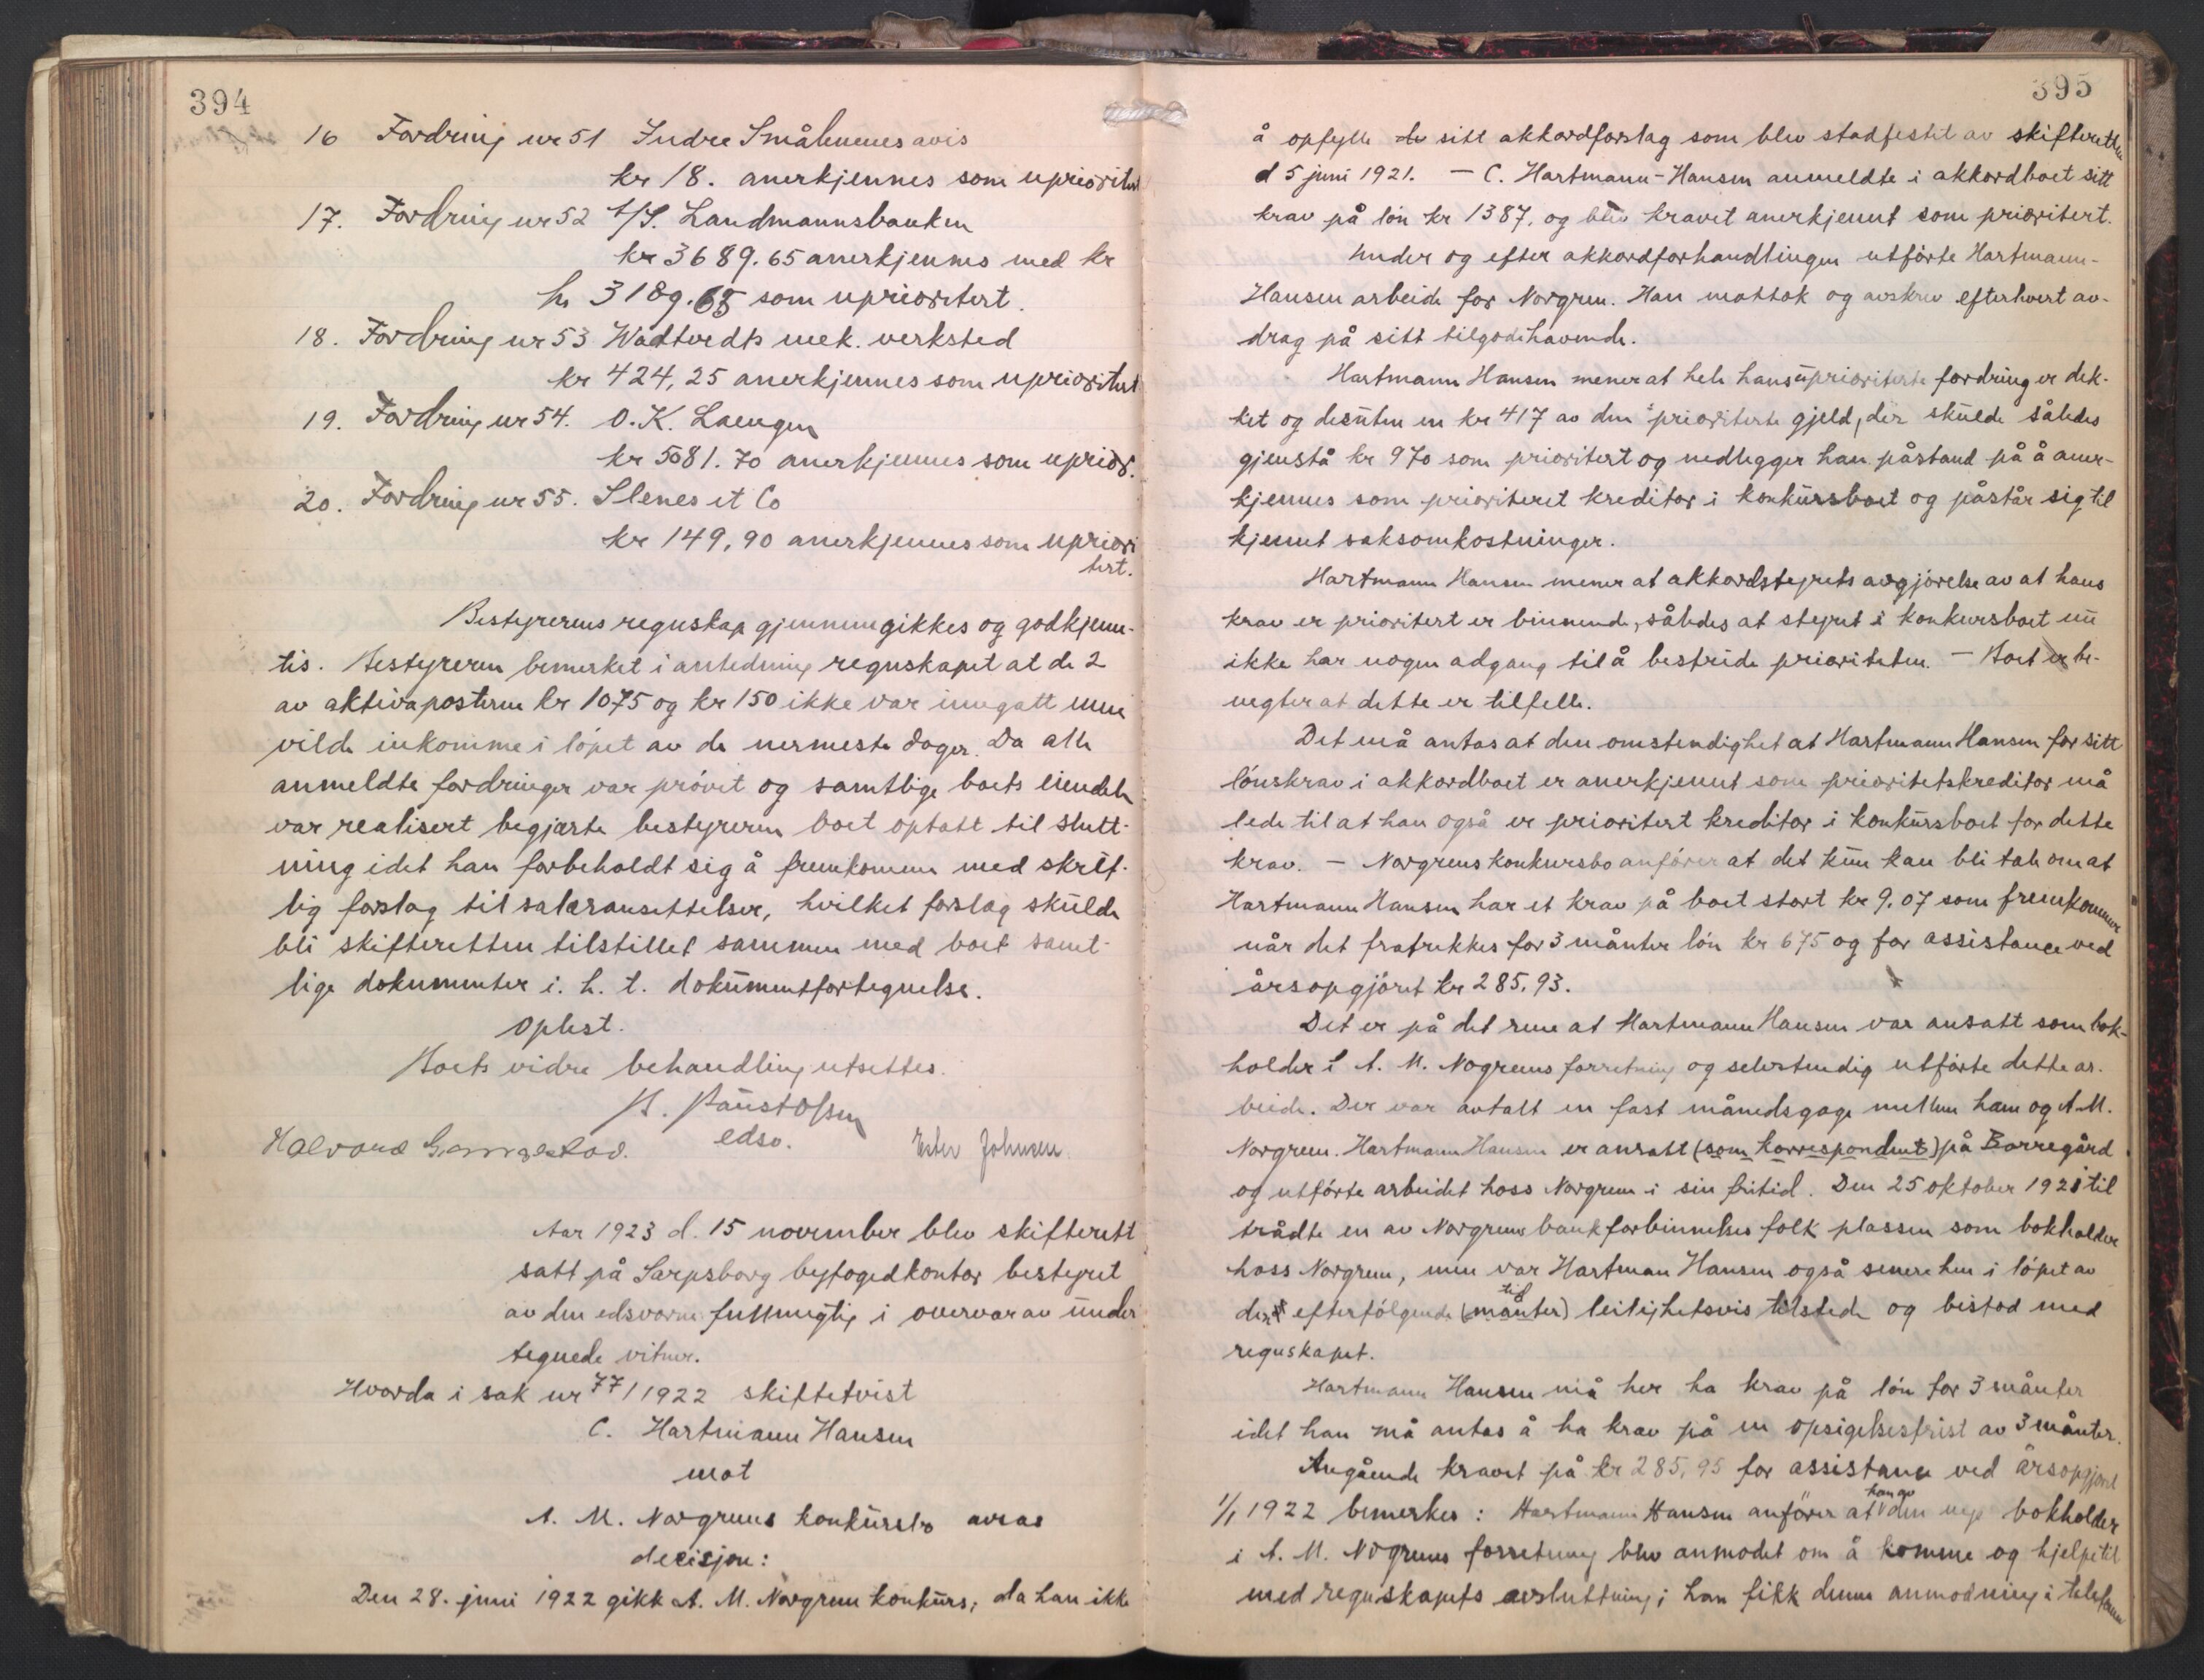 394
16 Fordring nr 51 Indre Smålenenes avis
kr 18. anerkjennes som uprioritert
17. Fordring nr 52 A/S. Landmannsbanken
kr 3689.65 anerkjennes med kr
kr 3189.65 som uprioritert.
18. Fordring nr 53 Wadtvedts mek. verksted
kr 424,25 anerkjennes som uprioritert
19. Fordring nr 54. O. K. Laengen
kr 5081.70 anerkjennes som uprior.
20. Fordring nr 55. Slenes et Co
kr 149,90 anerkjennes som upriori
tert.
Bestyrerens regnskap gjennemgikkes og godkjenn-
tes. Bestyreren bemerket i anledning regnskapet at de 2
av aktivaposterne kr 1075 og kr 150 ikke var inngatt men
vilde inkomme i løpet av de nermeste dager. Da alle
anmeldte fordringer var prøvet og samtlige boets eiendele
var realisert begjærte bestyreren boet optatt til slutt-
ning idet han forbeholdt sig å fremkomme med skrift-
lig forslag til salæransettelser, hvilket forslag skulde
bli skifteretten tilstillet sammen med boet samt-
lige dokumenter i. h. t. dokumentfortegnelse.
Oplest.
Boets vidre behandling utsettes.
edsv.
Halvard Ester Johnsen.
Aar 1923 d. 15 november blev skifterett
satt på Sarpsborg byfogedkontor bestyret
av den edsvorne fullmegtig i overvær av under
tegnede vitner.
Hvorda i sak nr 77/1922 skiftetvist
C. Hartmann Hansen
mot
A. M. Norgrens konkursbo avsas
decisjon:
Den 28. juni 1922 gikk A. M. Norgren konkurs, da han ikke
395
å opfylle de sitt akkordforslag som blev stadfestet av skifteretten
d 5 juni 1921. — C. Hartmann-Hansen anmeldte i akkordboet sitt
krav på løn kr 1387, og blev kravet anerkjennt som prioritert.
Under og efter akkordforhandlingen utførte Hartmann-
Hansen arbeide for Norgren. Han mottok og avskrev efterhvert av-
drag på sitt tilgodehavende.
Hartmann Hansen mener at hele hans uprioriterte fordring er dek-
ket og desuten en kr 417 av den prioriterte gjeld, der skulde således
gjenstå kr 970 som prioritert og nedlegger han påstand på å aner-
kjennes som prioriteret kreditor i konkursboet og påstår sig til
kjennt saksomkostninger.
Hartmann Hansen mener at akkordstyrets avgjørelse av at hans
krav er prioritert er binnende, således at styret i konkursboet nu
ikke har nogen adgang til å bestride prioriteten. — Boet er be-
negter at dette er tilfelle.
Det må antas at den omstendighet at Hartmann Hansen for sitt
lønskrav i akkordboet er anerkjennt som prioritetskreditor må
lede til at han også er prioritert kreditor i konkursboet for dette
krav. — Norgrens konkursbo anfører at det kun kan bli tale om at
Hartmann Hansen har et krav på boet stort kr 9,07 som fremkommer
når det fratrekkes for 3 månter løn kr 675 og for assistance ved
årsopgjøret kr 285,93.
Det er på det rene at Hartmann Hansen var ansatt som bok-
holder i A. M. Nogrens forretning og selvstendig utførte dette ar-
beide. Der var avtalt en fast månedsgage mellem ham og A.M.
Norgren. Hartmann Hansen er ansatt (som korrespondent) på Borregård
og utførte arbeidet hoss Norgren i sin fritid. Den 25 oktober 1921 til
trådte en av Norgrens bankforbinnelses folk plassen som bokholder
hoss Norgren, men var Hartman Hansen også senere hen i løpet av
den efterfølgende (månter) tid leilighetsvis tilstede og bistod med
regnskapet.
Hartmann Hansen må her ha krav på løn for 3 månter
idet han må antas å ha krav på en opsigelsesfrist av 3 månter.
Angående kravet på kr 285,95 for assistance ved årsopgjøret
1/1 1922 bemerkes: Hartmann Hansen anfører at han av den nye bokholder
i A. M. Nogrens forretning blev anmodet om å komme og hjelpe til
med regnskapets avsluttning; han fikk denne anmodning i telefonen